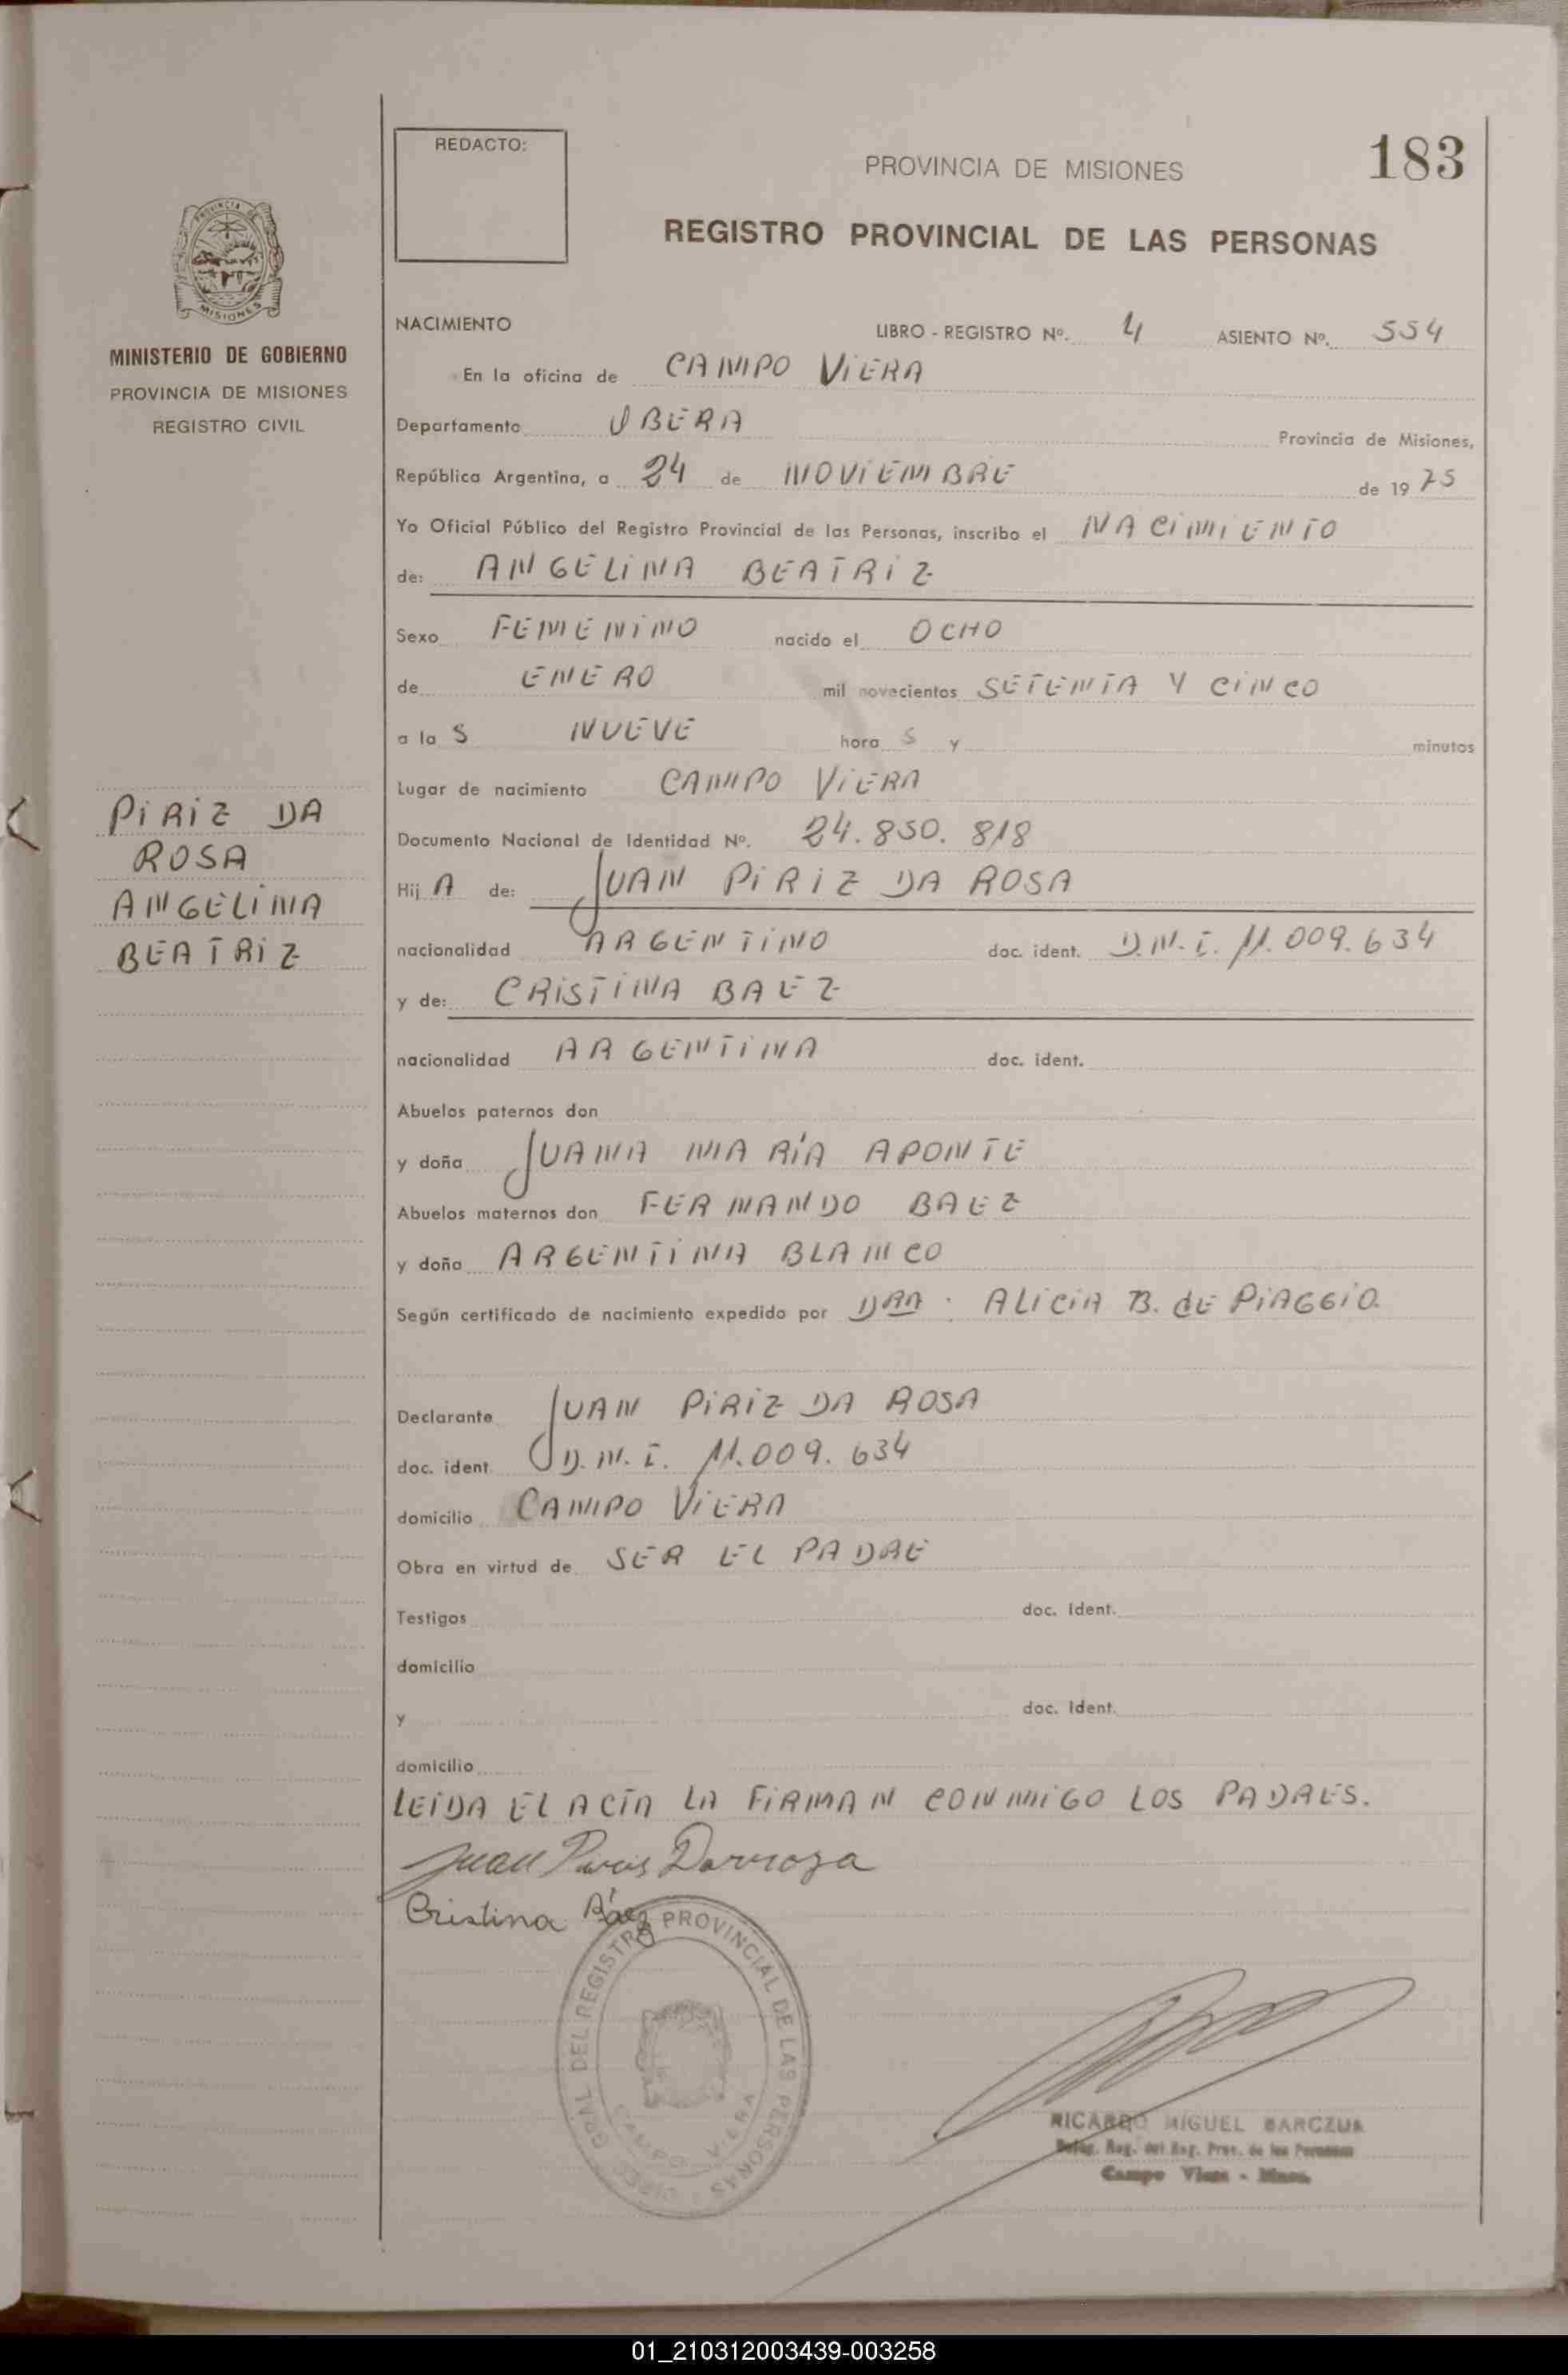 REDACTO:
PROVINCIA DE MISIONES
183
REGISTRO PROVINCIAL DE LAS PERSONAS
PROVINCIA DE
MISIONES
MINISTERIO DE GOBIERNO
PROVINCIA DE MISIONES
REGISTRO CIVIL
NACIMIENTO LIBRO - REGISTRO Nº. 4 ASIENTO Nº. 554
En la oficina de CAMPO VIERA
Departamento OBERA Provincia de Misiones,
República Argentina, a 24 de NOVIEMBRE de 1975
Yo Oficial Público del Registro Provincial de las Personas, inscribo el NACIMIENTO
de: ANGELINA BEATRIZ
Sexo FEMENINO nacido el OCHO
de ENERO mil novecientos SETENTA Y CINCO
a la S NUEVE hora S y minutos
Lugar de nacimiento CAMPO VIERA
Documento Nacional de Identidad Nº. 24.850.818
PIRIZ DA
ROSA
ANGELINA
BEATRIZ
Hij A de: JUAN PIRIZ DA ROSA
nacionalidad ARGENTINO doc. ident. D.N.I. 11.009.634
y de: CRISTINA BAEZ
nacionalidad ARGENTINA doc. ident.
Abuelos paternos don
y doña JUANA MARÍA APONTE
Abuelos maternos don FERNANDO BAEZ
y doña ARGENTINA BLANCO
Según certificado de nacimiento expedido por DRA. ALICIA B. de PIAGGIO.
Declarante JUAN PIRIZ DA ROSA
doc. ident. D.N.I. 11.009.634
domicilio CAMPO VIERA
Obra en virtud de SER EL PADRE
Testigos doc. Ident.
domicilio
y doc. Ident.
domicilio
LEIDA EL ACTA LA FIRMAN CONMIGO LOS PADRES.
Juan Piris Darroza
Cristina Báez
DIREC. GRAL. DEL REGISTRO PROVINCIAL DE LAS PERSONAS
CAMPO VIERA
RICARDO MIGUEL BARCZUK
Reg. del Reg. Prov. de las Personas
Campo Viera - Mnes.
01_210312003439-003258